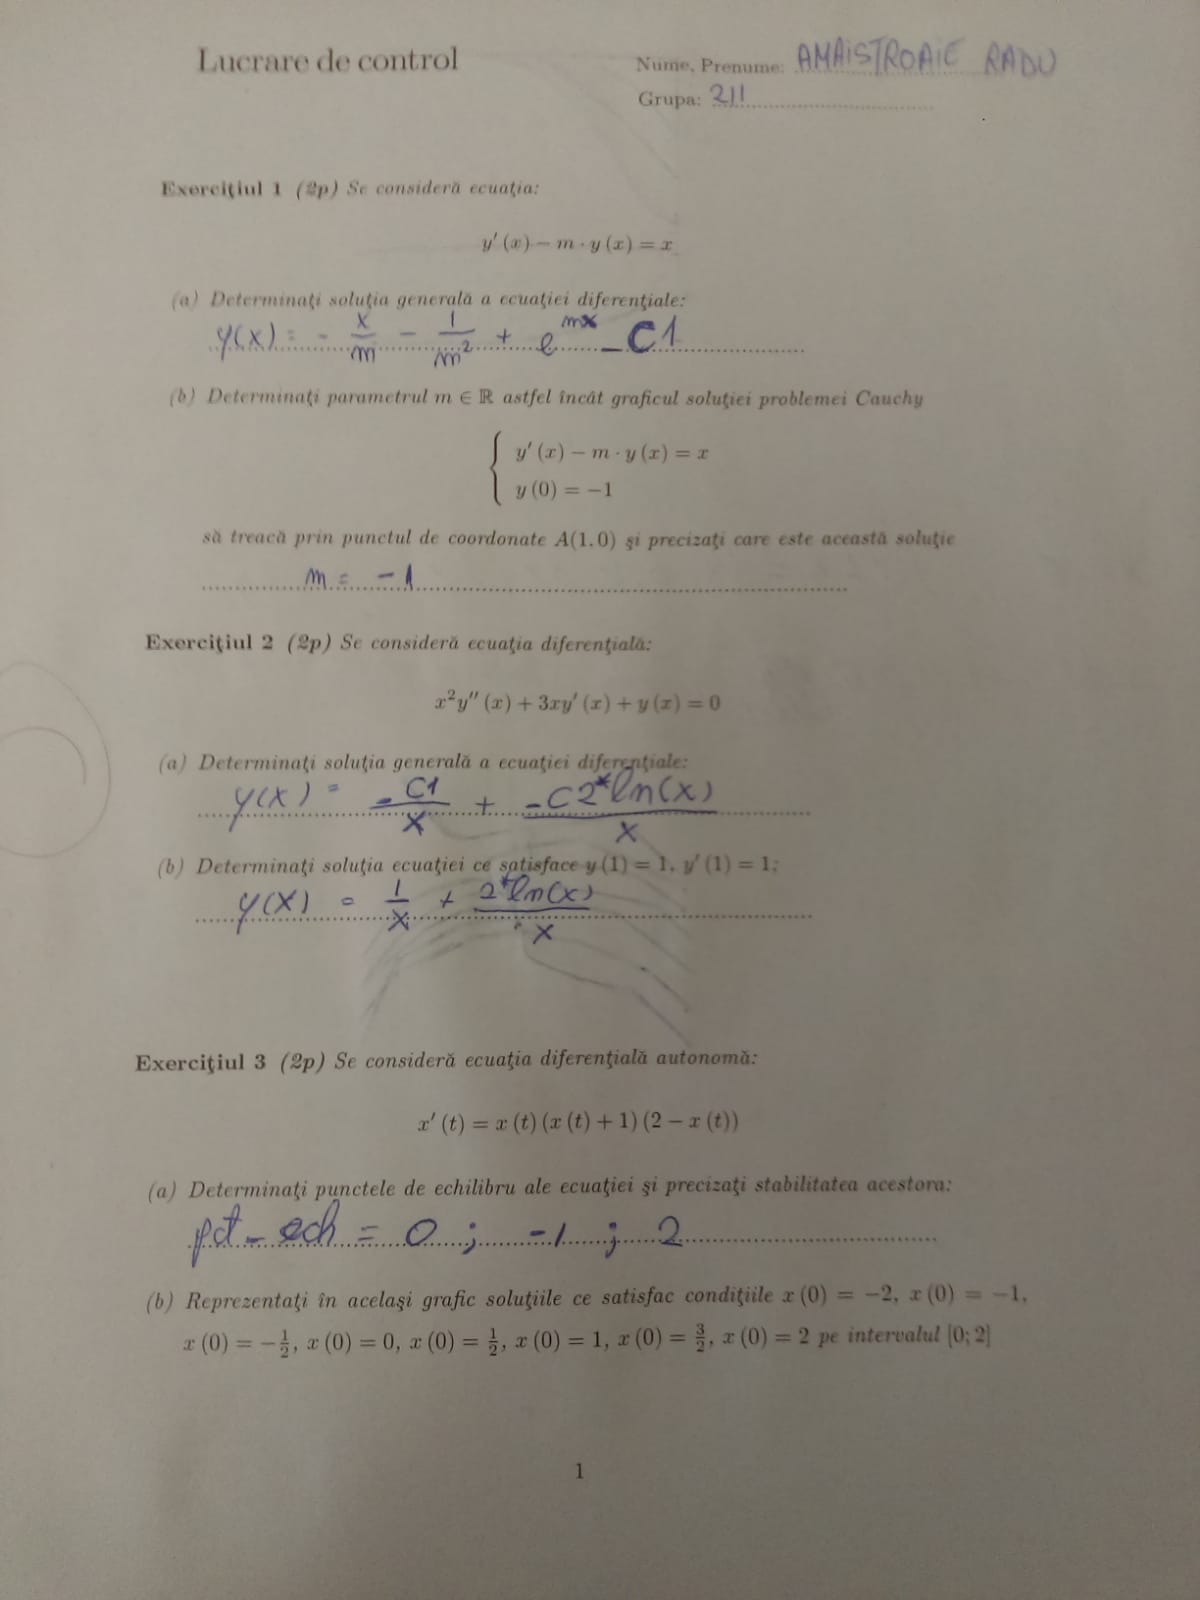 Lucrare de control
Nume, Prenume: AMAISTROAIE RADU
Grupa: 211
Exerciţiul 1 (2p) Se consideră ecuaţia:
y′(x) − m · y(x) = x
(a) Determinaţi soluţia generală a ecuaţiei diferenţiale:
y(x) = - x/m - 1/m² + e^mx _C1
(b) Determinaţi parametrul m ∈ ℝ astfel încât graficul soluţiei problemei Cauchy
{ y′(x) − m · y(x) = x
y(0) = −1
să treacă prin punctul de coordonate A(1,0) şi precizaţi care este această soluţie
m = -1
Exerciţiul 2 (2p) Se consideră ecuaţia diferenţială:
x²y″(x) + 3xy′(x) + y(x) = 0
(a) Determinaţi soluţia generală a ecuaţiei diferenţiale:
y(x) = _C1/x + _C2*ln(x)/x
(b) Determinaţi soluţia ecuaţiei ce satisface y(1) = 1, y′(1) = 1;
y(x) = 1/x + 2*ln(x)/x
Exerciţiul 3 (2p) Se consideră ecuaţia diferenţială autonomă:
x′(t) = x(t)(x(t) + 1)(2 − x(t))
(a) Determinaţi punctele de echilibru ale ecuaţiei şi precizaţi stabilitatea acestora:
pct_ech = 0 ; -1 ; 2
(b) Reprezentaţi în acelaşi grafic soluţiile ce satisfac condiţiile x(0) = −2, x(0) = −1,
x(0) = −1/2, x(0) = 0, x(0) = 1/2, x(0) = 1, x(0) = 3/2, x(0) = 2 pe intervalul [0; 2]
1